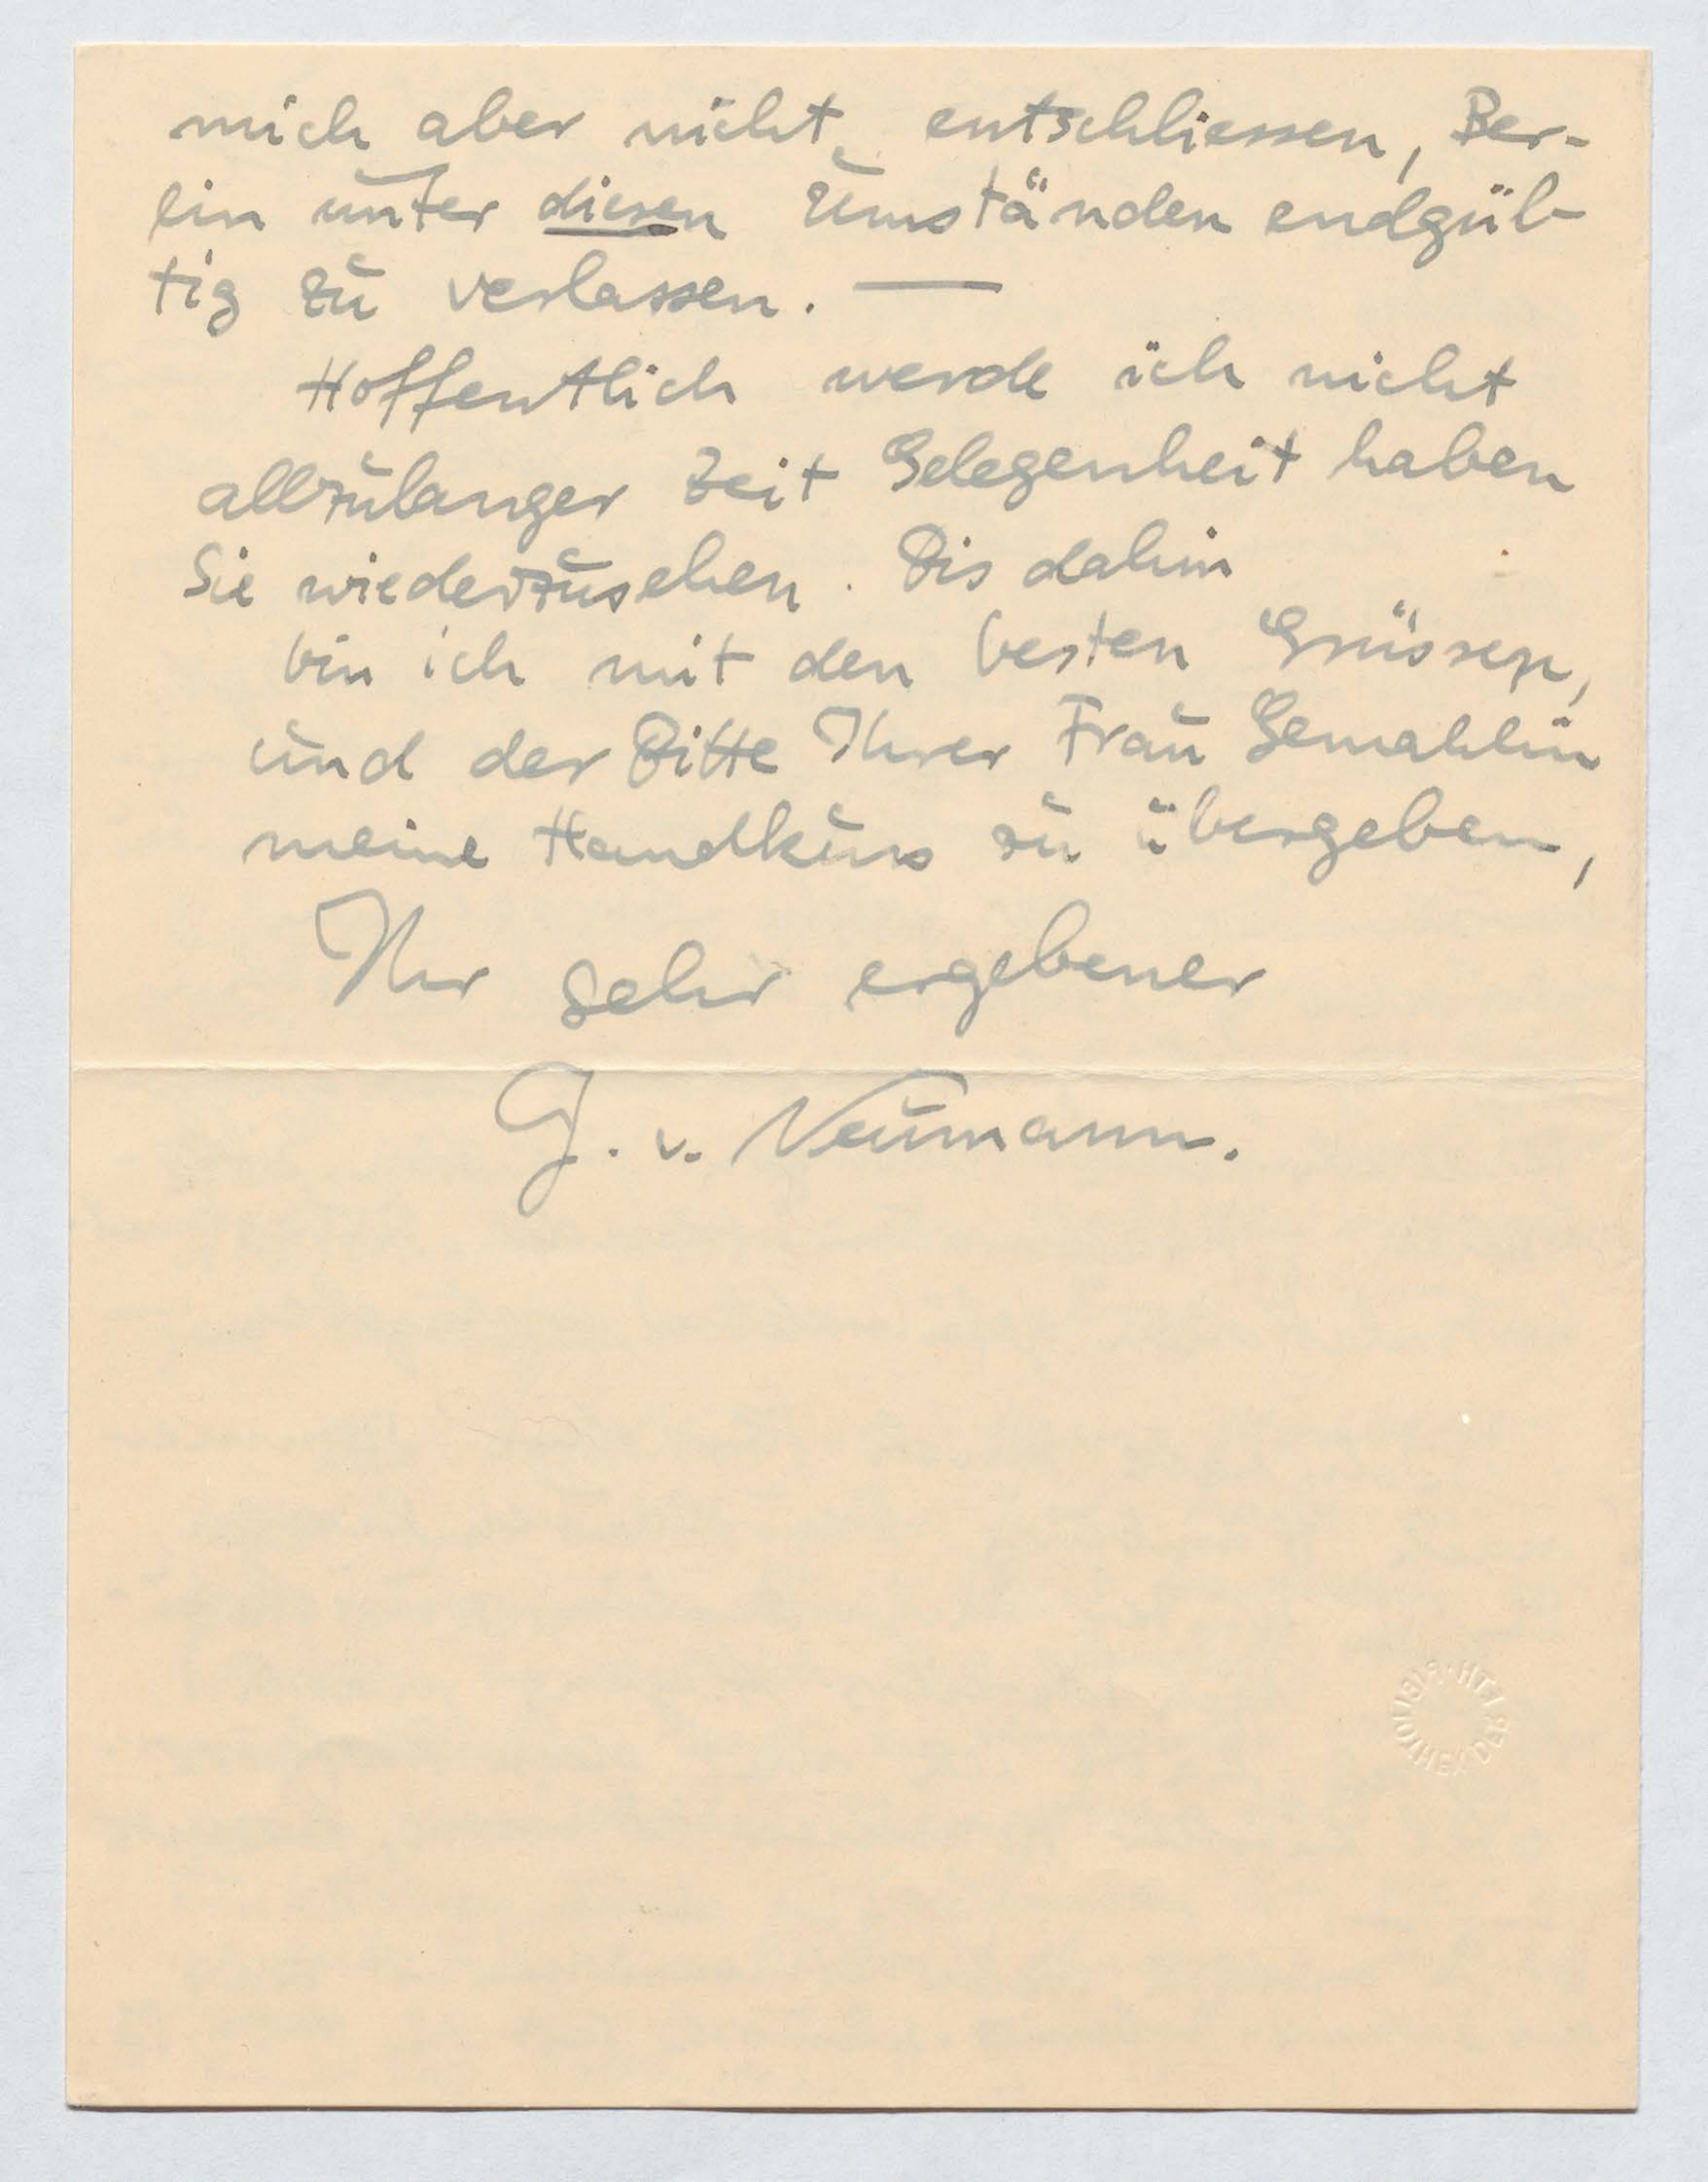 mich aber nicht entschliessen, Ber-
lin unter diesen Umständen endgül-
tig zu verlassen. —
Hoffentlich werde ich nicht
allzulanger Zeit Gelegenheit haben
Sie wiederzusehen. Bis dahin
bin ich mit den besten Grüssen,
und der Bitte Ihrer Frau Gemahlin
meine Handkuss zu übergeben,
Ihr sehr ergebener
J. v. Neumann.
BIBLIOTHEK DER E.T.H.